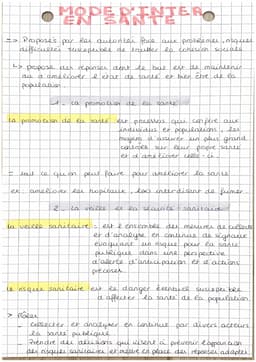 MODE D'INTER
EN SANTÉ
=> Proposés par les autorités face aux problèmes, risques
difficultés susceptible de troubler la cohésion sociale
↳ propose des réponses dont le but est de maintenir
ou d'améliorer l'état de santé et bien être de la
population.
1. La promotion de la santé
La promotion de la santé est processus qui confère aux
individus et populations, les
moyens d'assurer un plus grand
contrôle sur leur propre santé
et d'améliorer celle-ci.
= tout ce qu'on peut faire pour améliorer la santé
ex: améliorer les hopitaux, lois interdisant de fumer.
2. La veille et la sécurité sanitaire
La veille sanitaire : est l'ensemble des mesures de collecte
et d'analyse en continue de signaux
évoquant un risque pour la santé
publique dans une perspective
d'alerte d'anticipation et d'actions
précoces.
Le risque sanitaire est le danger éventuel susceptible
d'affecter la santé de la population
> Rôles
- collecter et analyser en continue par divers acteurs
la santé publique
- Prendre des décisions qui visent à prévenir l'apparition
des risques sanitaires et mettre en place des réponses adaptées